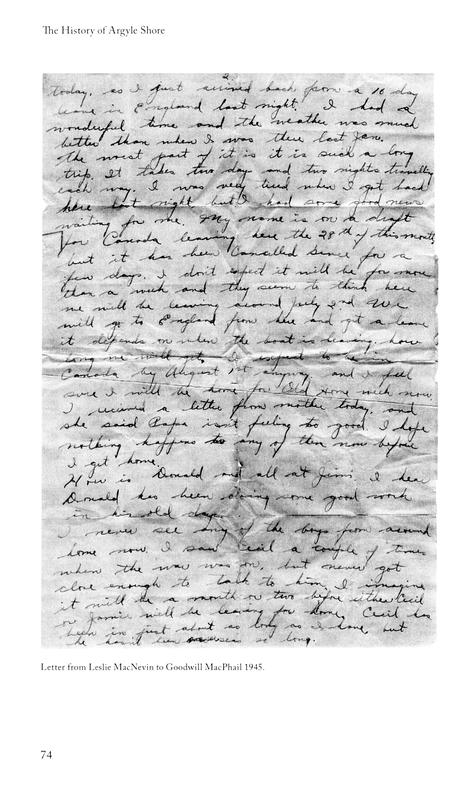 The History of Argyle Shore
2.
today, as I just arrived back from a 16 day
leave in England last night. I had a
wonderful time and the weather was much
better than when I was there last Jan.
the worst part of it is it is such a long
trip. It takes two day and two nights travelling
each way. I was very tired when I got back
here last night but I had some good news
waiting for me. My name is on a draft
for Canada leaving here the 28th of this month,
but it has been Cancelled sence for a
few days. I don't expect it will be for more
than a week and they seem to think here
we will be leaving around July 2nd. We
will go to England from here and get a leave
it depends on when the boat is leaving, how
long we will get. I expect to be in
Canada by August 1st anyway and I feel
sure I will be home for Old Home week now.
I received a letter from mother today, and
she said Papa isn't feeling to good. I hope
nothing happens to any of them now before
I get home.
How is Donald and all at Jim. I hear
Donald has been doing some good work
in his old days.
I never see any of the boys from around
home now. I saw Cecil a couple of times
when the war was on, but never got
close enough to talk to him. I imagine
it will be a month or two before either Cecil
or Jamie will be leaving for home. Cecil has
been in just about as long as I have, but
he hasn't been overseas so long.
Letter from Leslie MacNevin to Goodwill MacPhail 1945.
74